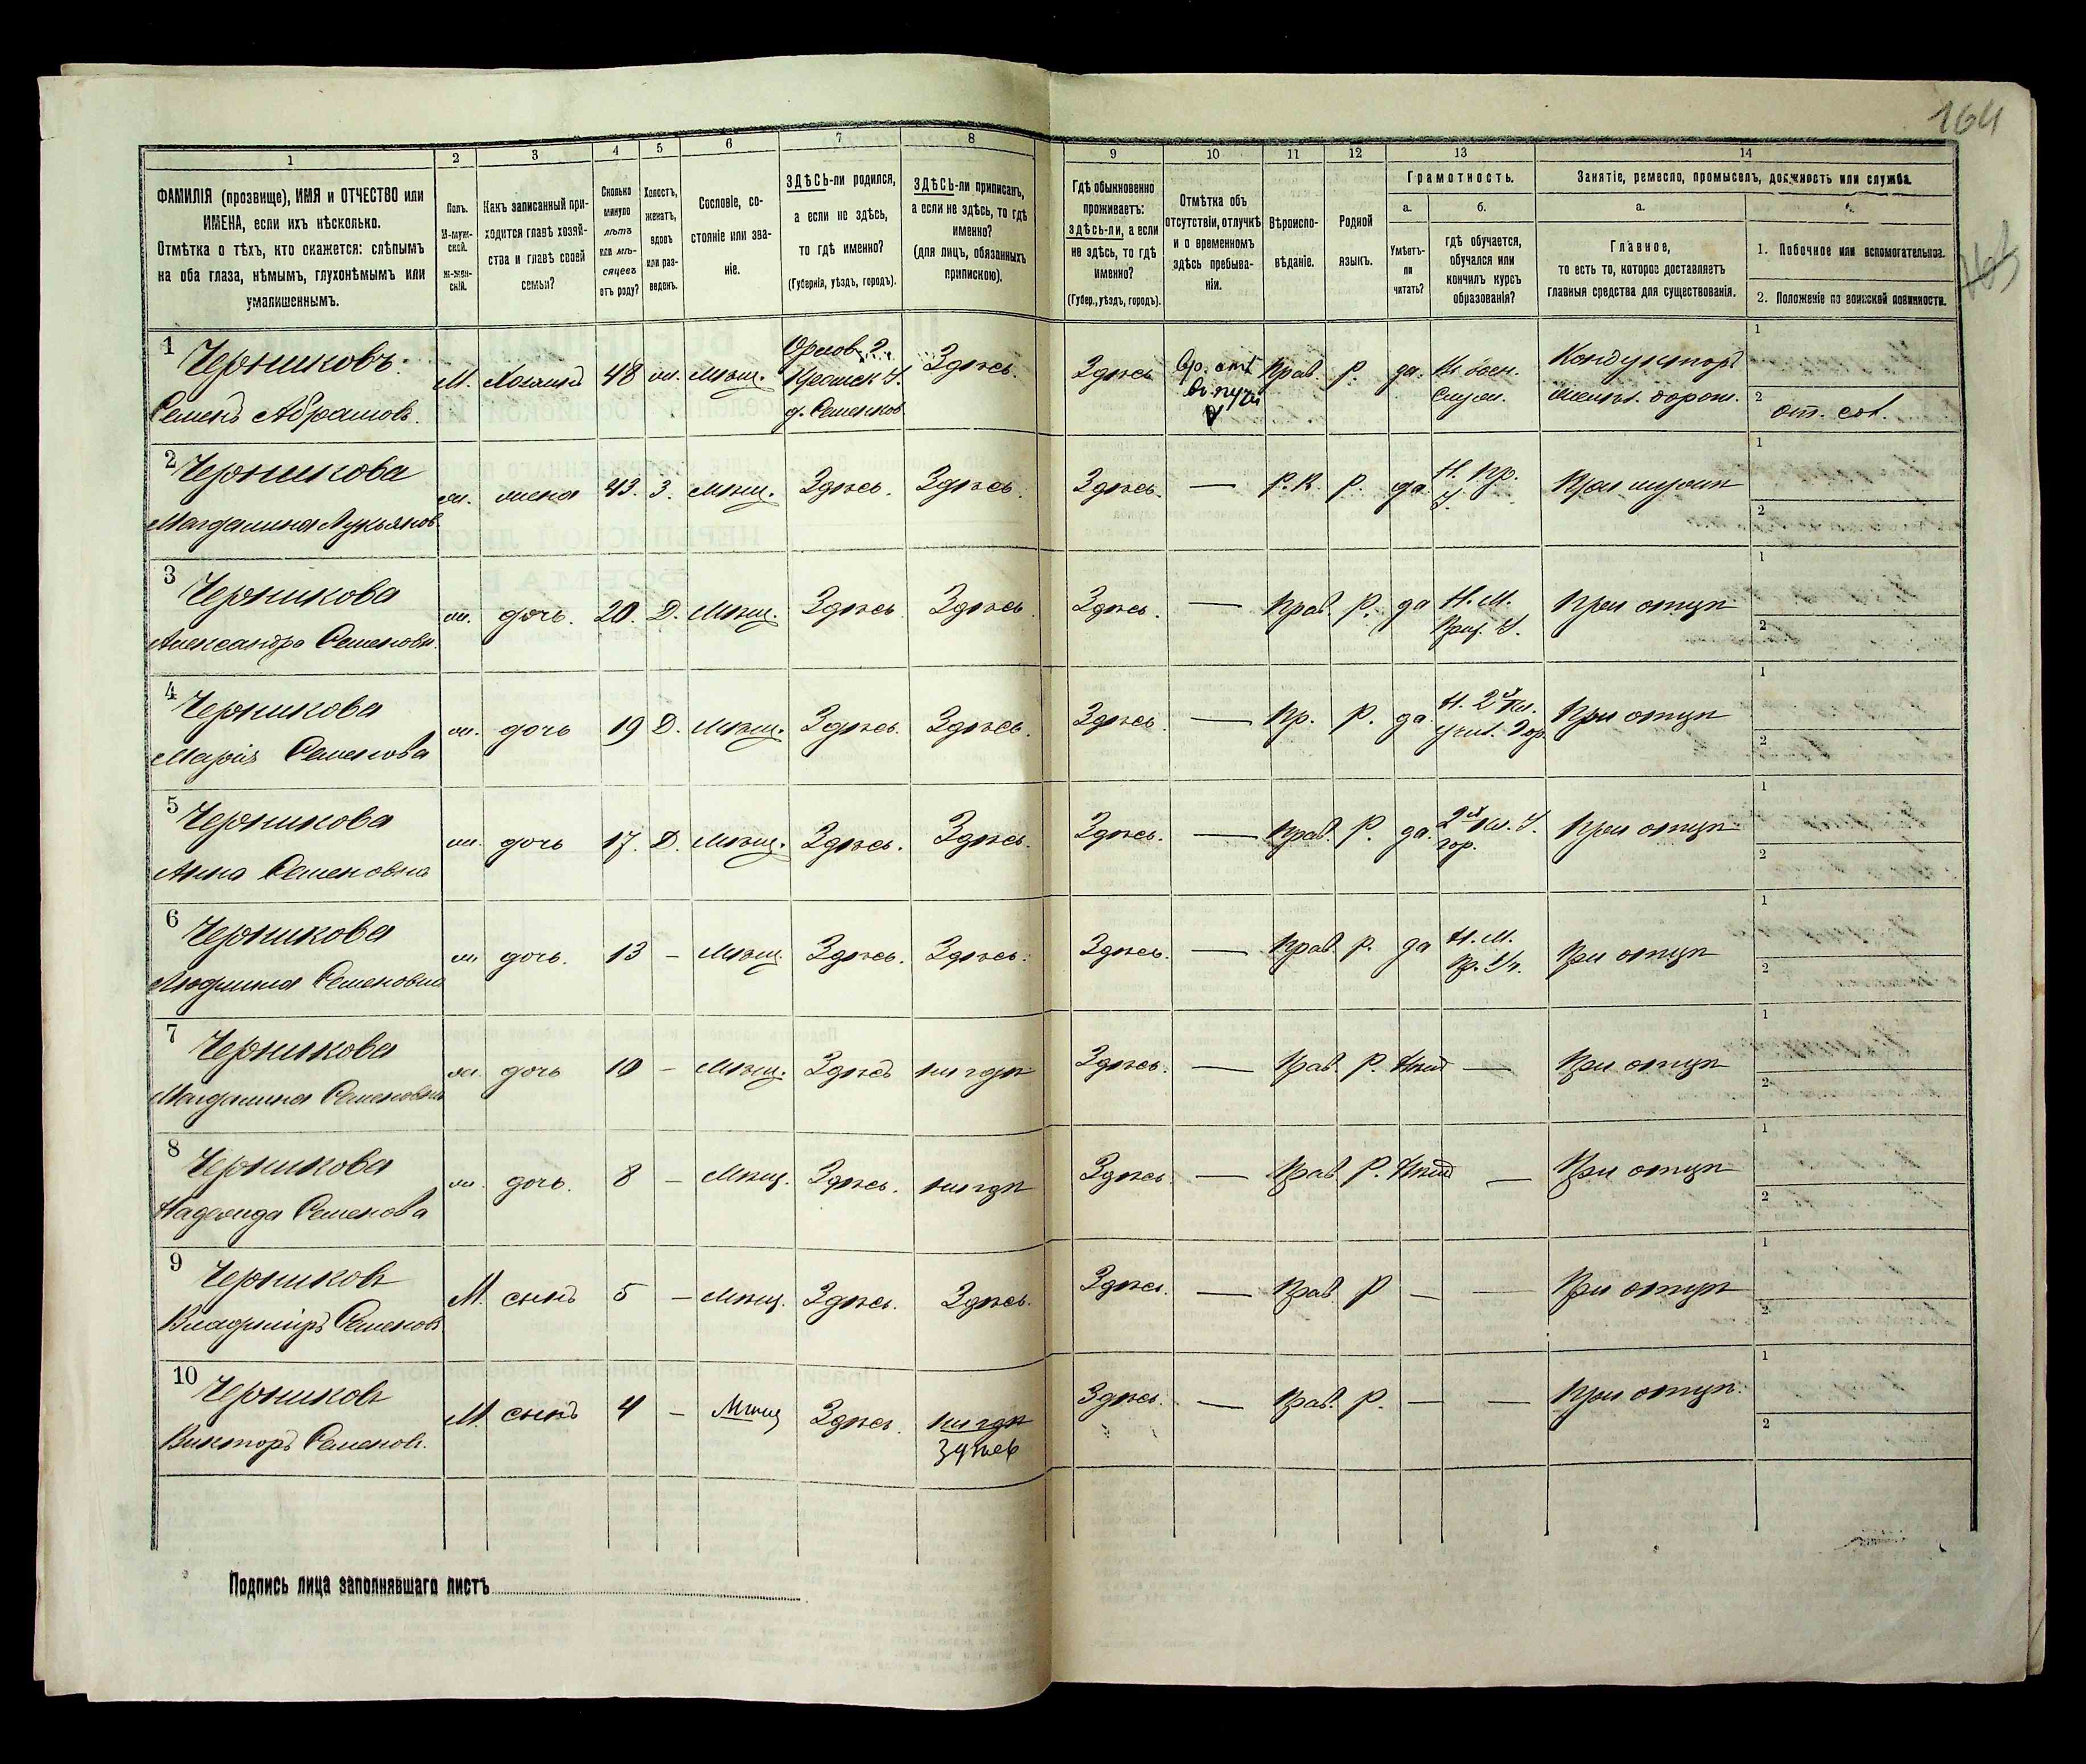 164
1 2 3 4 5 6 7 8 9 10 11 12 13 14
ФАМИЛІЯ (прозвище), ИМЯ и ОТЧЕСТВО или
ИМЕНА, если ихъ нѣсколько.
Отмѣтка о тѣхъ, кто скажется: слѣпымъ
на оба глаза, нѣмымъ, глухонѣмымъ или
умалишеннымъ.
Полъ.
М-муж-
ской.
ж-жен-
скій.
Какъ записанный при-
ходится главѣ хозяй-
ства и главѣ своей
семьи?
Сколько
минуло
лѣтъ
или мѣ-
сяцевъ
отъ роду?
Холостъ,
женатъ,
вдовъ
или раз-
веденъ.
Сословіе, со-
стояніе или зва-
ніе.
ЗДѢСЬ-ли родился,
а если не здѣсь,
то гдѣ именно?
(Губернія, уѣздъ, городъ).
ЗДѢСЬ-ли приписанъ,
а если не здѣсь, то гдѣ
именно?
(для лицъ, обязанныхъ
припискою).
Гдѣ обыкновенно
проживаетъ:
здѣсь-ли, а если
не здѣсь, то гдѣ
именно?
(Губер., уѣздъ, городъ).
Отмѣтка объ
отсутствіи, отлучкѣ
и о временномъ
здѣсь пребыва-
ніи.
Вѣроиспо-
вѣданіе.
Родной
языкъ.
Грамотность.
а.
Умѣетъ-
ли
читать?
б.
гдѣ обучается,
обучался или
кончилъ курсъ
образованія?
Занятіе, ремесло, промыселъ, должность или служба.
а.
Главное,
то есть то, которое доставляетъ
главныя средства для существованія.
1. Побочное или вспомогательное.
2. Положеніе по воинской повинности.
1 Черниковъ
Семенъ Абрамовъ.
М. Хозяинъ 48 ж. Мѣщ.
Орлов. г.
Кромск. у.
д. Семенков.
Здѣсь.
Здѣсь
Вр. отъ
въ пути
Прав. Р. да.
Н. воен.
служ.
Кондукторъ
желѣз. дорож.
1
2 от. сол.
2 Черникова
Магдалина Лукьянов.
ж. жена 43. З. Мѣщ. Здѣсь. Здѣсь. Здѣсь. — Р.К. Р. да
Н. Пр.
У.
При мужѣ
1
2
3 Черникова
Александра Семеновн.
ж. дочь. 20. Д. Мѣщ. Здѣсь Здѣсь Здѣсь. — Прав. Р. да
Н. М.
Прих. У.
При отцѣ
1
2
4 Черникова
Марія Семенова
ж. дочь 19 Д. Мѣщ. Здѣсь. Здѣсь. Здѣсь — Пр. Р. да.
Н. 2х Кл.
учил. Гор.
При отцѣ
1
2
5 Черникова
Анна Семеновна
ж. дочь 17. Д. Мѣщ. Здѣсь. Здѣсь. Здѣсь. — Прав. Р. да.
2х Кл. У.
гор.
При отцѣ
1
2
6 Черникова
Людмила Семеновна
ж. дочь. 13 — Мѣщ. Здѣсь. Здѣсь. Здѣсь. — Прав. Р. да
Н. М.
Пр. Уч.
При отцѣ
1
2
7 Черникова
Магдалина Семеновна
ж. дочь 10 — Мѣщ. Здѣсь нигдѣ Здѣсь. — Прав. Р. Нѣтъ — При отцѣ
1
2
8 Черникова
Надежда Семенова
ж. дочь. 8 — Мѣщ. Здѣсь. нигдѣ Здѣсь. — Прав. Р. Нѣтъ — При отцѣ
1
2
9 Черниковъ
Владиміръ Семеновъ
М. сынъ 5 — Мѣщ. Здѣсь. Здѣсь. Здѣсь. — Прав. Р — — При отцѣ
1
2
10 Черниковъ
Викторъ Семенов.
М. сынъ 4 — Мѣщ Здѣсь. нигдѣ
здѣсь
Здѣсь. — Прав. Р. — — При отцѣ.
1
2
Подпись лица заполнявшаго листъ